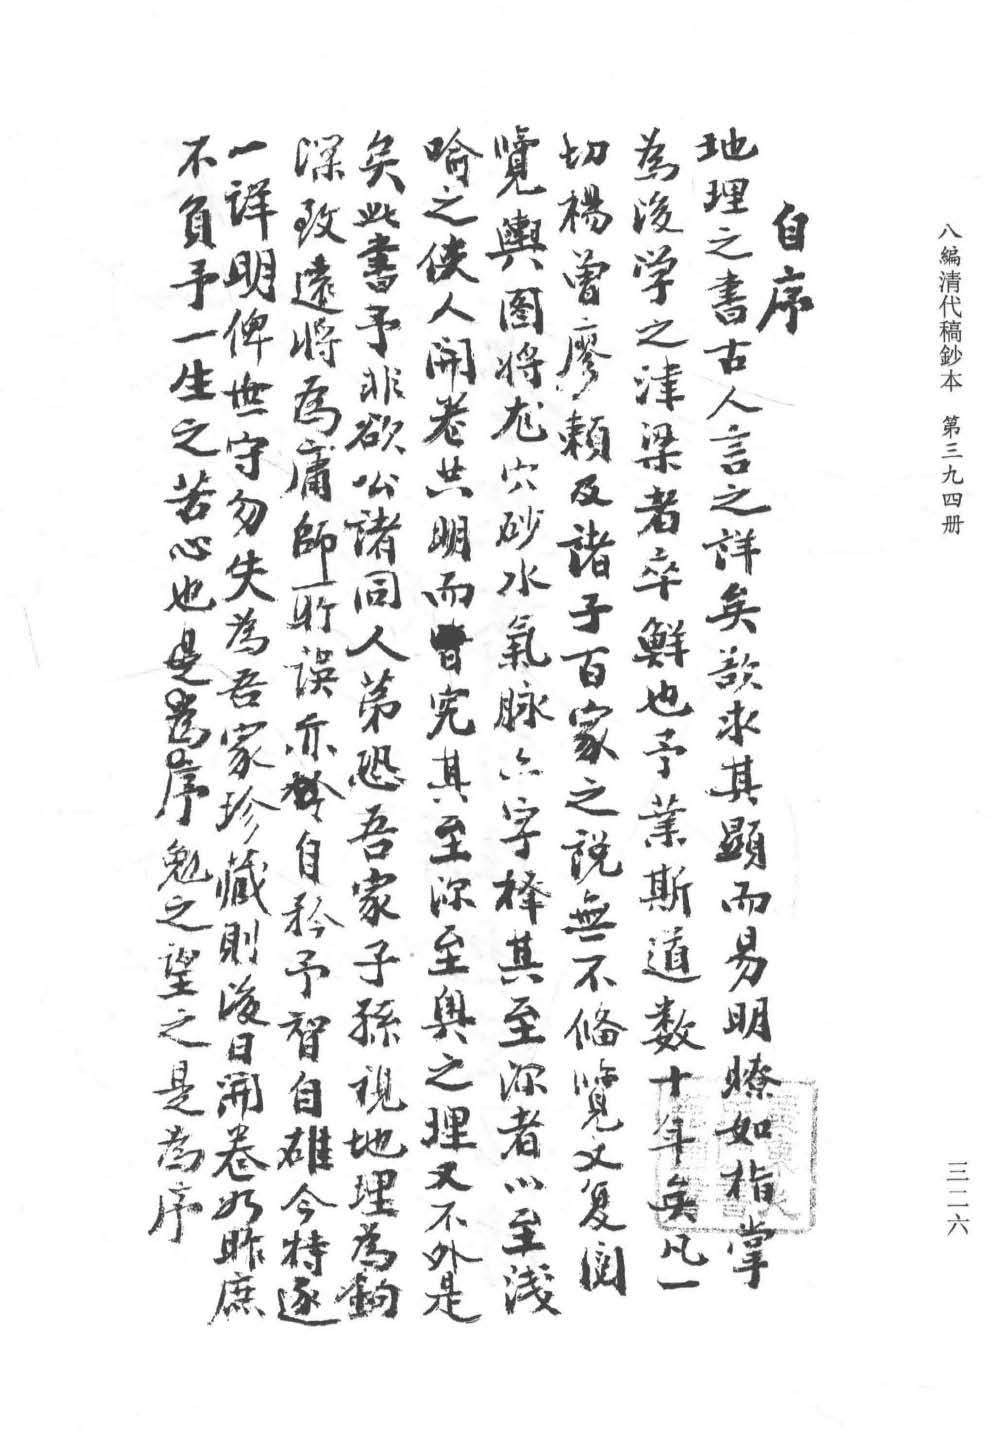 八編清代稿鈔本　第三九四册
三二六
自序
地理之書古人言之詳矣欲求其顯而易明瞭如指掌
為後学之津梁者卒鮮也予業斯道数十年矣凡一
切楊曾廖賴及諸子百家之說無不俻覽又复図
覽輿图將龙穴砂水氣脉六字择其至深者以至浅
喻之使人開卷共明而究其至深至奧之理又不外是
矣此書予非欲公諸同人苐恐吾家子孫視地理為鈎
深致遠將為庸師所誤亦自矜予智自雄今特逐
一詳明俾世守勿失為吾家珍藏則後日開卷如昨庶
不負予一生之苦心也是為序勉之望之是為序